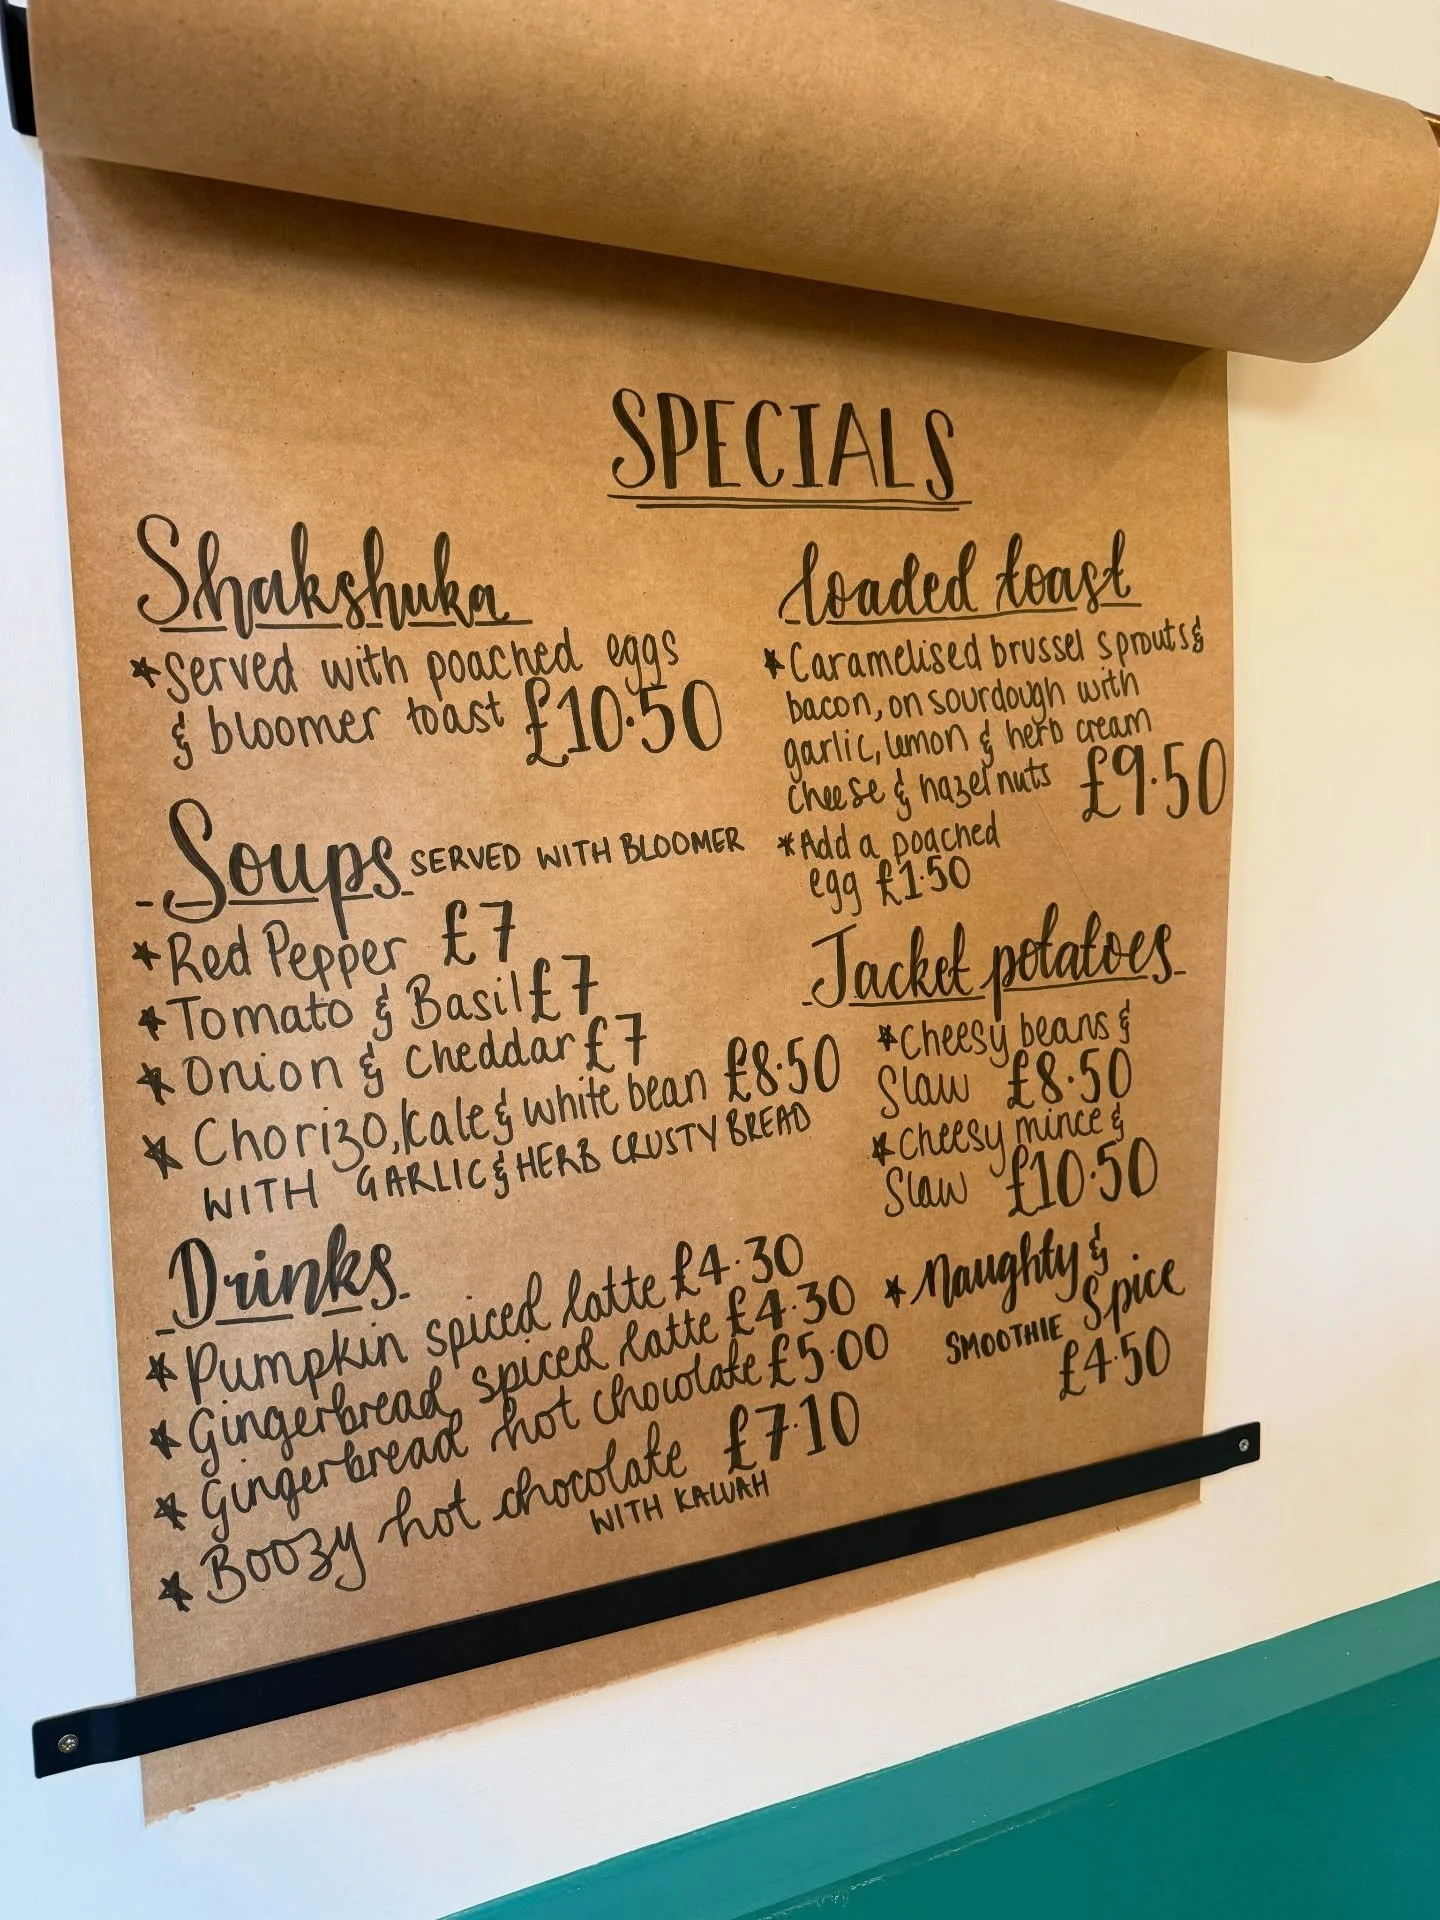 SPECIALS
Shakshuka
*Served with poached eggs
& bloomer toast £10.50
Soups SERVED WITH BLOOMER
*Red Pepper £7
*Tomato & Basil £7
*Onion & cheddar £7
*Chorizo, kale & white bean £8.50
WITH GARLIC & HERB CRUSTY BREAD
Drinks
*Pumpkin spiced latte £4.30
*Gingerbread spiced latte £4.30
*Gingerbread hot chocolate £5.00
*Boozy hot chocolate £7.10
WITH KALUAH
loaded toast
*Caramelised brussel sprouts &
bacon, on sourdough with
garlic, lemon & herb cream
cheese & hazelnuts £9.50
*Add a poached
egg £1.50
Jacket potatoes
*Cheesy beans &
Slaw £8.50
*Cheesy mince &
Slaw £10.50
*Naughty &
SMOOTHIE Spice
£4.50